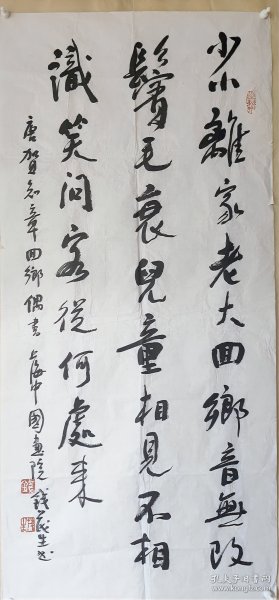 少小離家老大回鄉音無改
鬢毛衰兒童相見不相
識笑問客從何處來
唐賀知章回鄉偶書 上海中國畫院 錢茂生書
孔夫子旧书网